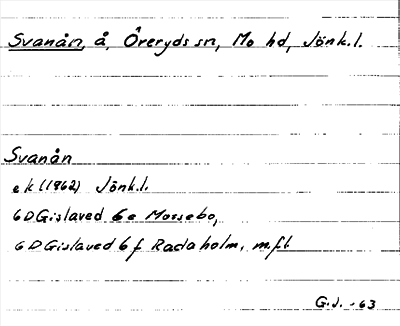 Svanån, å, Öreryds sn, Mo hd, Jönk.l.
Svanån
ek (1962) Jönk.l.
6D Gislaved 6e Mossebo,
6D Gislaved 6f Radaholm, m.fl.
G.J. -63